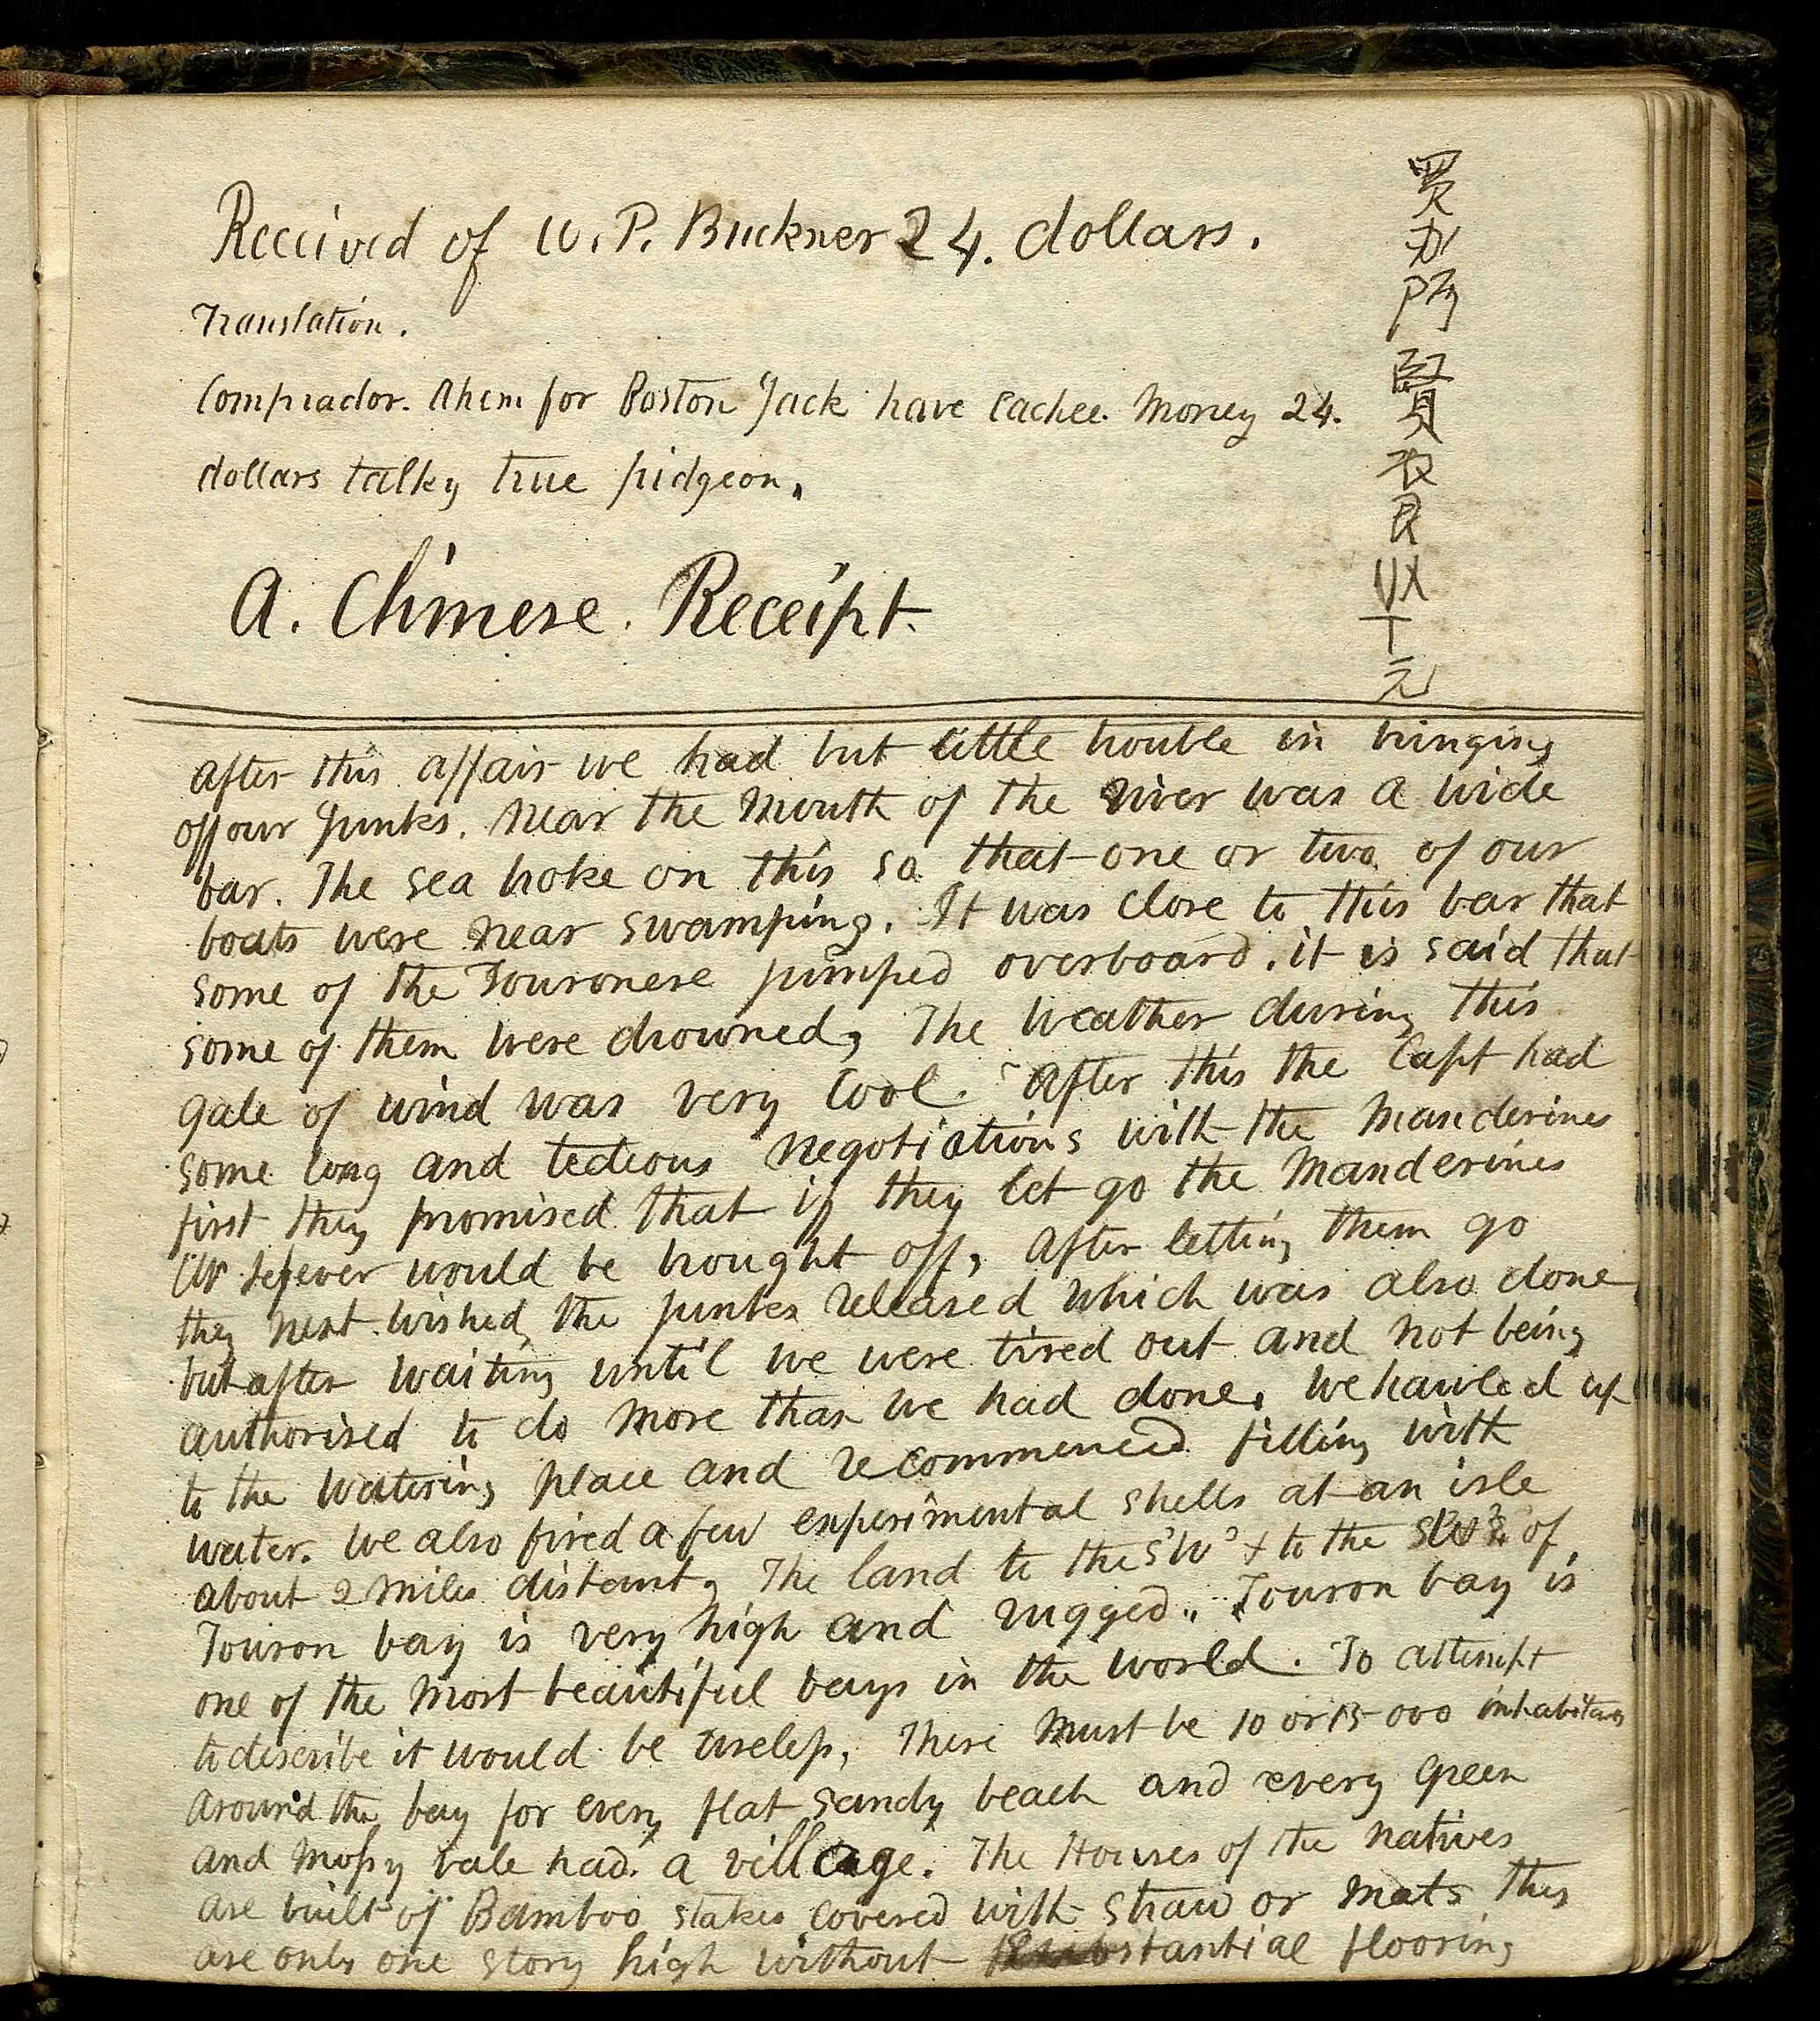 Received of W. P. Buckner 24. dollars.
Translation.
Comprador. Ahem for Boston Jack have Cachee. Money 24.
dollars talky true pidgeon,
A. Chinese. Receipt.
元
after this affair we had but little trouble in bringing
off our Junks. Near the Mouth of the River was a wide
bar. The sea broke on this so that one or two of our
boats were near swamping. It was close to this bar that
some of the Touronese jumped overboard. it is said that
some of them were drowned, The weather during this
gale of wind was very Cool. After this the Capt had
some long and tedious negotiations with the Manderines
first they promised that if they let go the Manderines
would be brought off, After letting them go
they next wished the junks released which was also done
but after waiting until we were tired out and not being
authorised to do more than we had done, We hauled up
to the watering place and recommenced filling with
water. We also fired a few experimental shells at an isle
about 2 miles distant, The land to the S'W' + to the of
Touron bay is very high and rugged.. Touron bay is
one of the most beautiful bays in the world. To attempt
to describe it would be useless, There must be 10 or 15 000
around the bay for every flat sandy beach and every green
and mossy vale had a village. The Houses of the natives
are built of Bamboo stakes covered with straw or mats They
are only one story high without flooring